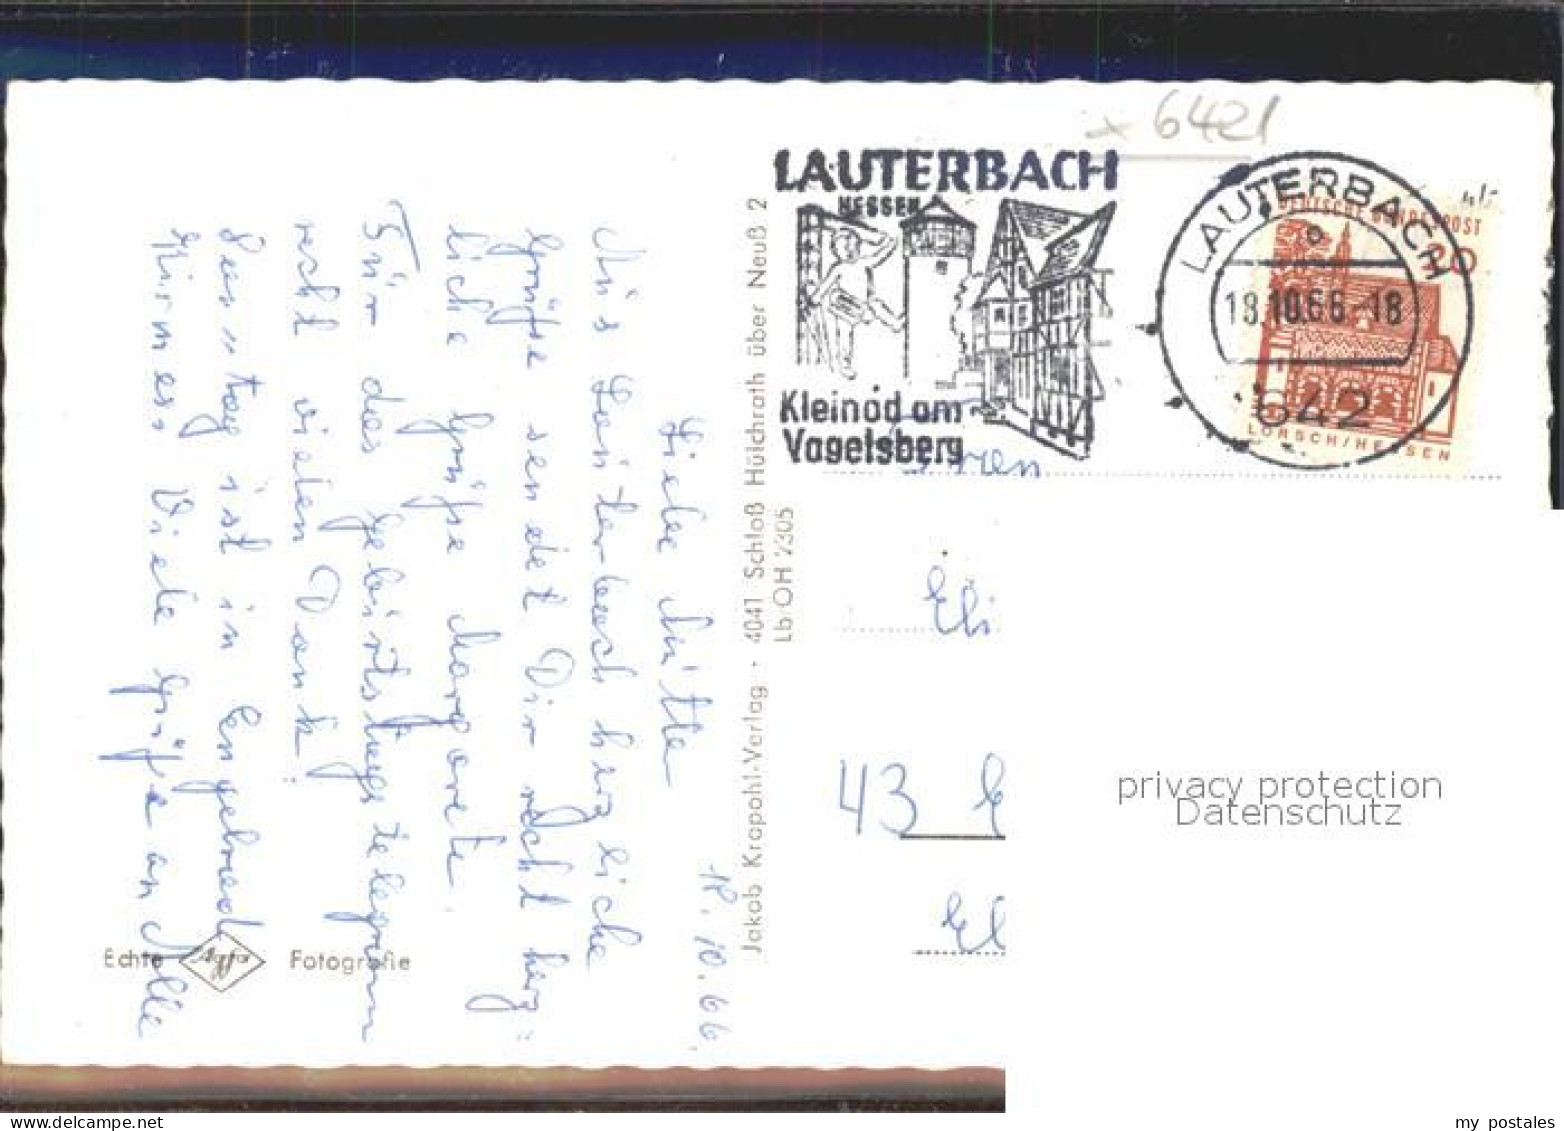 18.10.66.
Liebe Mütter
Aus Lauterbach herzliche
Grüße sendet Dir recht herz=
liche Grüße Margarete.
Für das Geburtstagstelegramm
recht vielen Dank!
Sonntag ist in Engelrod
Kirmes. Viele Grüße an Alle
Echte Agfa Fotografie
Jakob Krapohl-Verlag · 4041 Schloß Hülchrath über Neuß 2
Lb OH 2305
x 6421
LAUTERBACH
HESSEN
Kleinod am
Vogelsberg
LAUTERBACH
18.10.66.-18
642
DEUTSCHE BUNDESPOST
20
LORSCH/HESSEN
Eli
43
El
privacy protection
Datenschutz
delcampe.net
my_postales